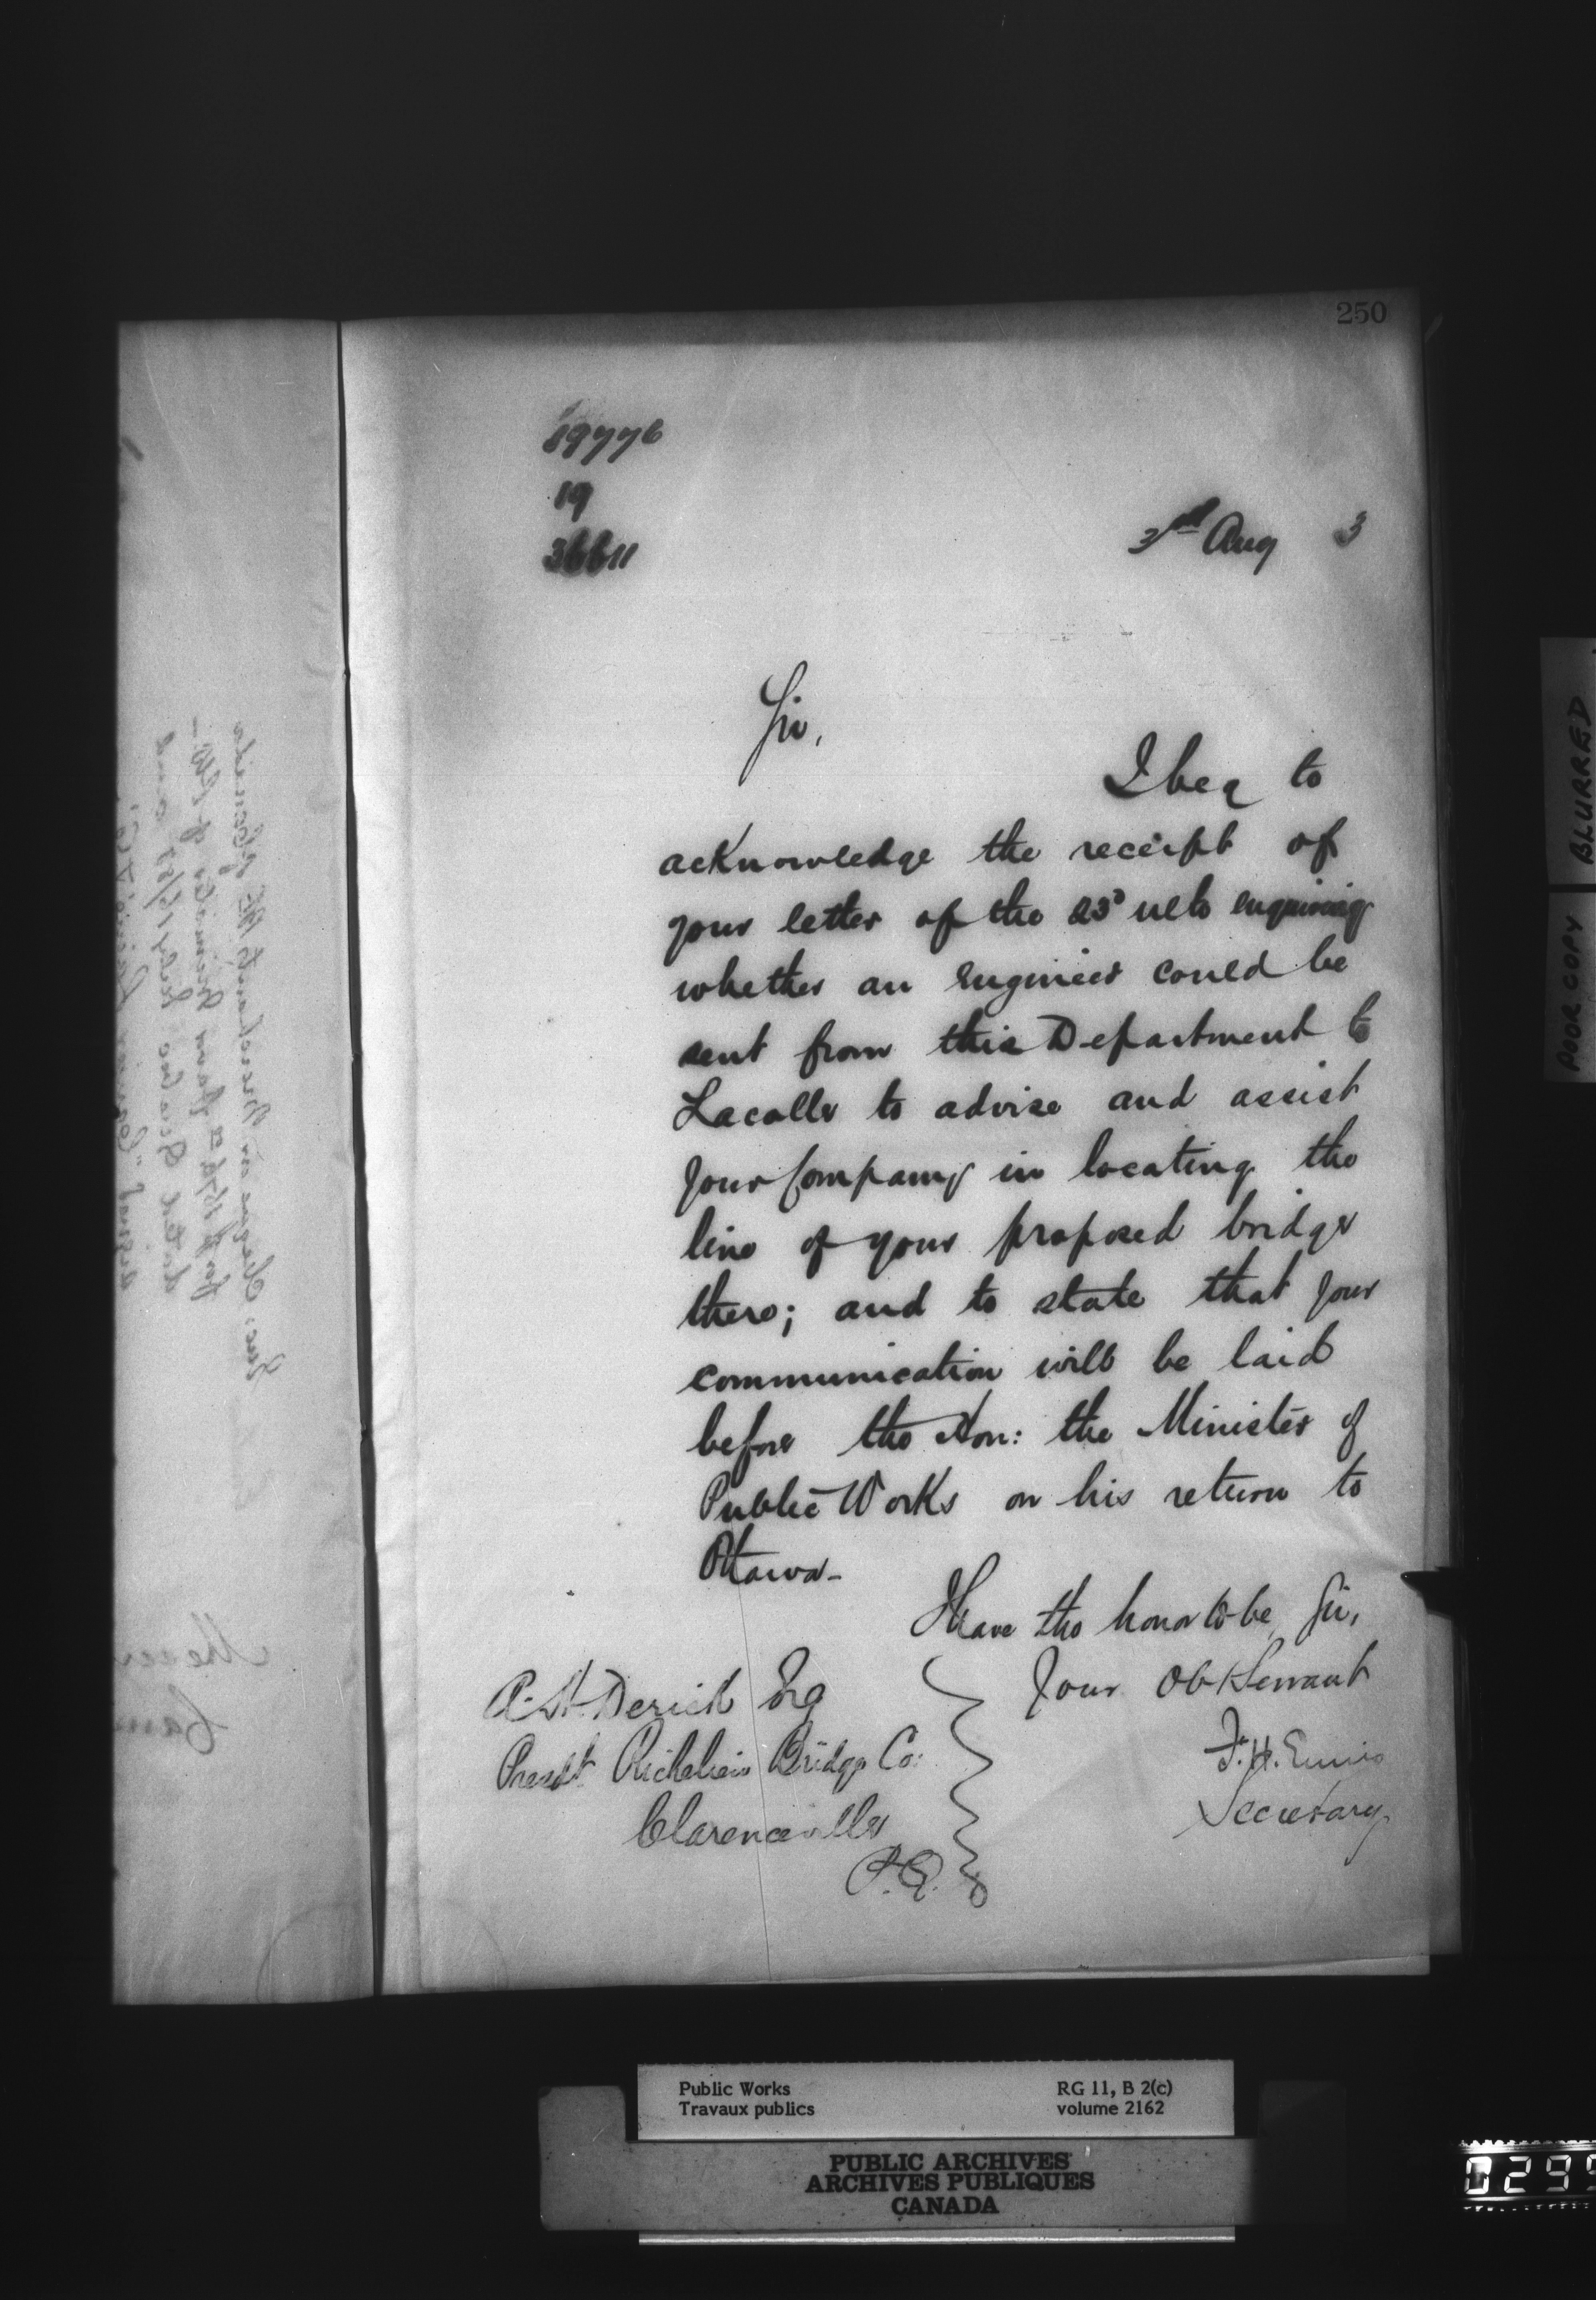 250
89776
19
36611
3rd Aug 3
Sir,
I beg to
acknowledge the receipt of
your letter of the 23d ulto enquiring
whether an Engineer could be
sent from this Department to
Lacolle to advise and assist
your Company in locating the
line of your proposed bridge
there; and to state that your
communication will be laid
before the Hon: the Minister of
Public Works on his return to
Ottawa-
Have the honor to be, Sir,
Your Obt Servant
F. H. Ennis
Secretary
Derick Esq
Presdt Richelieu Bridge Co:
Clarenceville
P.Q.
POOR COPY
BLURRED
Public Works
Travaux publics
RG 11, B 2(c)
volume 2162
PUBLIC ARCHIVES
ARCHIVES PUBLIQUES
CANADA